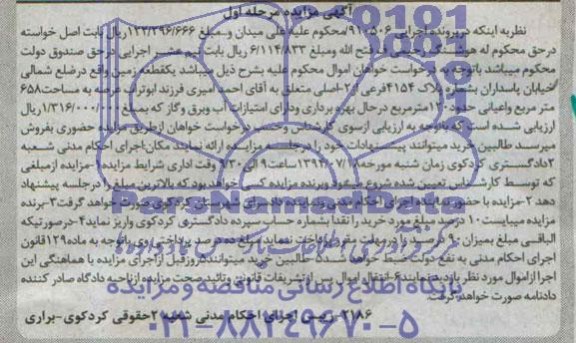 آگهی مزایده مرحله اول
نظر به اینکه در پرونده اجرایی ۹۱۰۵۰۶ محکوم علیه علی میدان و مبلغ ۱۲۲/۲۹۶/۶۶۶ ریال بابت اصل خواسته
در حق محکوم له هوشنگ رحیمی ف فتح الله ومبلغ ۶/۱۱۴/۸۳۳ ریال بابت نیم عشر اجرایی در حق صندوق دولت
محکوم میباشد باتوجه به درخواست خواهان اموال محکوم علیه بشرح ذیل میباشد یکقطعه زمین واقع در ضلع شمالی
خیابان پاسداران بشماره پلاک ۴۱۵۴ فرعی از ۲-اصلی متعلق به آقای احمد امیری فرزند ابوتراب عرصه به مساحت ۶۵۸
متر مربع واعیانی حدود ۱۲۰ مترمربع در حال بهره برداری ودارای امتیازات آب وبرق وگاز که بمبلغ ۱/۳۱۶/۰۰۰/۰۰۰ ریال
ارزیابی شده است که باتوجه به ارزیابی ازسوی کارشناس وحسب درخواست خواهان ازطریق مزایده حضوری بفروش
میرسد طالبین خرید میتوانند پیشنهادات خود را درجلسه مزایده ارائه نمایند مکان:اجرای احکام مدنی شعبه
۲دادگستری کردکوی زمان شنبه مورخه ۱۳۹۲/۰۷/۱ ساعت ۹ الی ۹/۳۰ وقت اداری شرایط مزایده ۱-مزایده ازمبلغی
که توسط کارشناس تعیین شده شروع میشود وبرنده مزایده کسی خواهد بود که بالاترین مبلغ را درجلسه پیشنهاد
دهد ۲-مزایده با حضور نماینده اجرای احکام مدنی ونماینده دادسرای شهرستان کردکوی صورت خواهد گرفت ۳-برنده
مزایده میبایست ۱۰ درصد مبلغ مورد خرید را نقدا بشماره حساب سپرده دادگستری کردکوی واریز نماید ۴-در صورتیکه
الباقی مبلغ بمیزان ۹۰ درصد را در مهلت مقرر پرداخت ننماید مبلغ ده درصد پرداختی اولیه باتوجه به ماده ۱۲۹ قانون
اجرای احکام مدنی به نفع دولت ضبط خواهد شد ۵-طالبین خرید میتوانند ۵روز قبل از اجرای مزایده با هماهنگی این
اجرا از اموال مورد نظر بازدید نمایند ۶-انتقال اموال پس از تشریفات قانونی و تائید صحت مزایده ازناحیه دادگاه صادر کننده
دادنامه صورت خواهد گرفت.
۲۱۸۶-رئیس اجرای احکام مدنی شعبه ۲ حقوقی کردکوی-براری
ParsNamadData
پایگاه اطلاع رسانی مناقصه و مزایده
۰۲۱-۸۸۳۴۹۶۷۰-۵